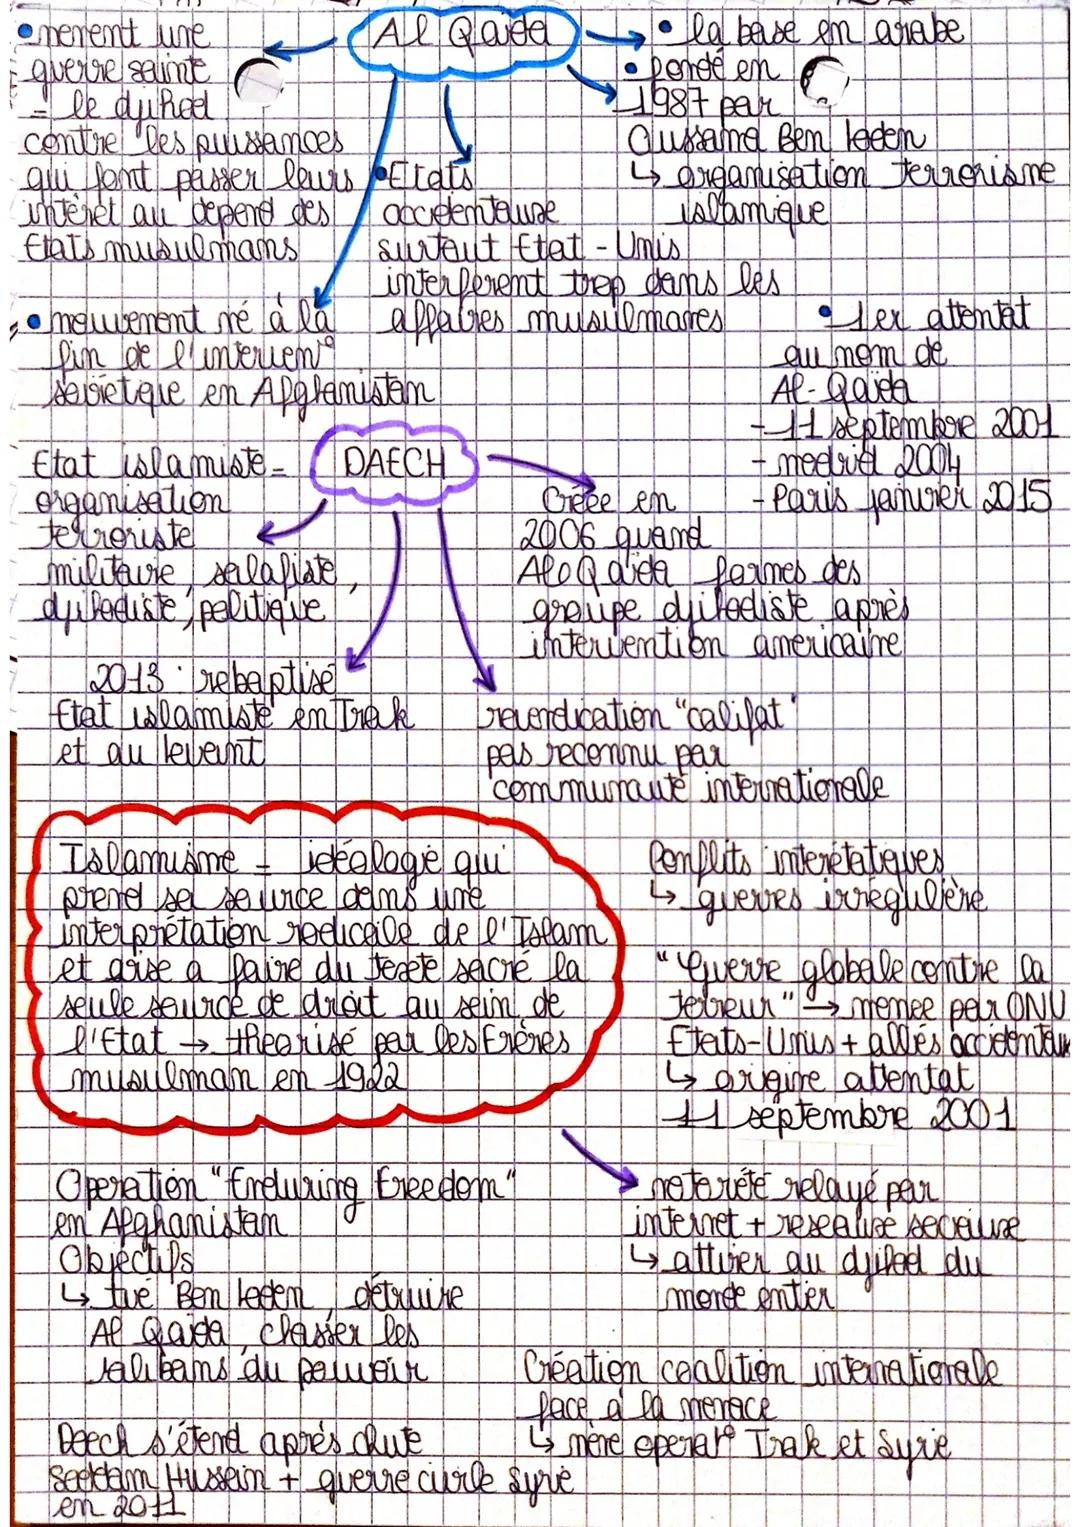 Al Qaida
• mènent une
guerre sainte
= le djihad
contre les puissances
qui font passer leurs
intérêt au depend des
Etats musulmans
• la base en arabe
• fondé en
1987 par
Oussama Ben laden
↳ organisation terrorisme
islamique
• Etats
occidentaux
surtout Etat-Unis
interferent trop dans les
affaires musulmanes
• mouvement né à la
fin de l'interven°
soviétique en Afghanistan
• 1er attentat
au nom de
Al-Qaïda
- 11 septembre 2001
- madrid 2004
- Paris janvier 2015
DAECH
Etat islamiste =
organisation
terroriste
militaire, salafiste,
djihadiste, politique
Créée en
2006 quand
Al Qaida formes des
groupe djihadiste après
intervention américaine
2013 : rebaptisé
Etat islamiste en Irak
et au levant
revendication "califat"
pas reconnu par
communauté internationale
Islamisme = idéologie qui
prend sa source dans une
interprétation radicale de l'Islam
et vise a faire du texte sacré la
seule source de droit au sein de
l'Etat → théorisé par les Frères
musulman en 1922
Conflits interétatiques
↳ guerres irrégulière
"Guerre globale contre la
terreur" → menee par ONU
Etats-Unis + alliés occidentaux
↳ origine attentat
11 septembre 2001
Operation "Enduring Freedom"
en Afghanistan
Objectifs
↳ tué Ben laden, détruire
Al Qaida, chasser les
talibans du pouvoir
notoriété relayé par
internet + reseaux sociaux
↳ attirer au djihad du
monde entier
Création coalition internationale
face à la menace
↳ mène operat° Irak et Syrie
Daech s'étend après chute
Saddam Hussein + guerre civile Syrie
en 2011